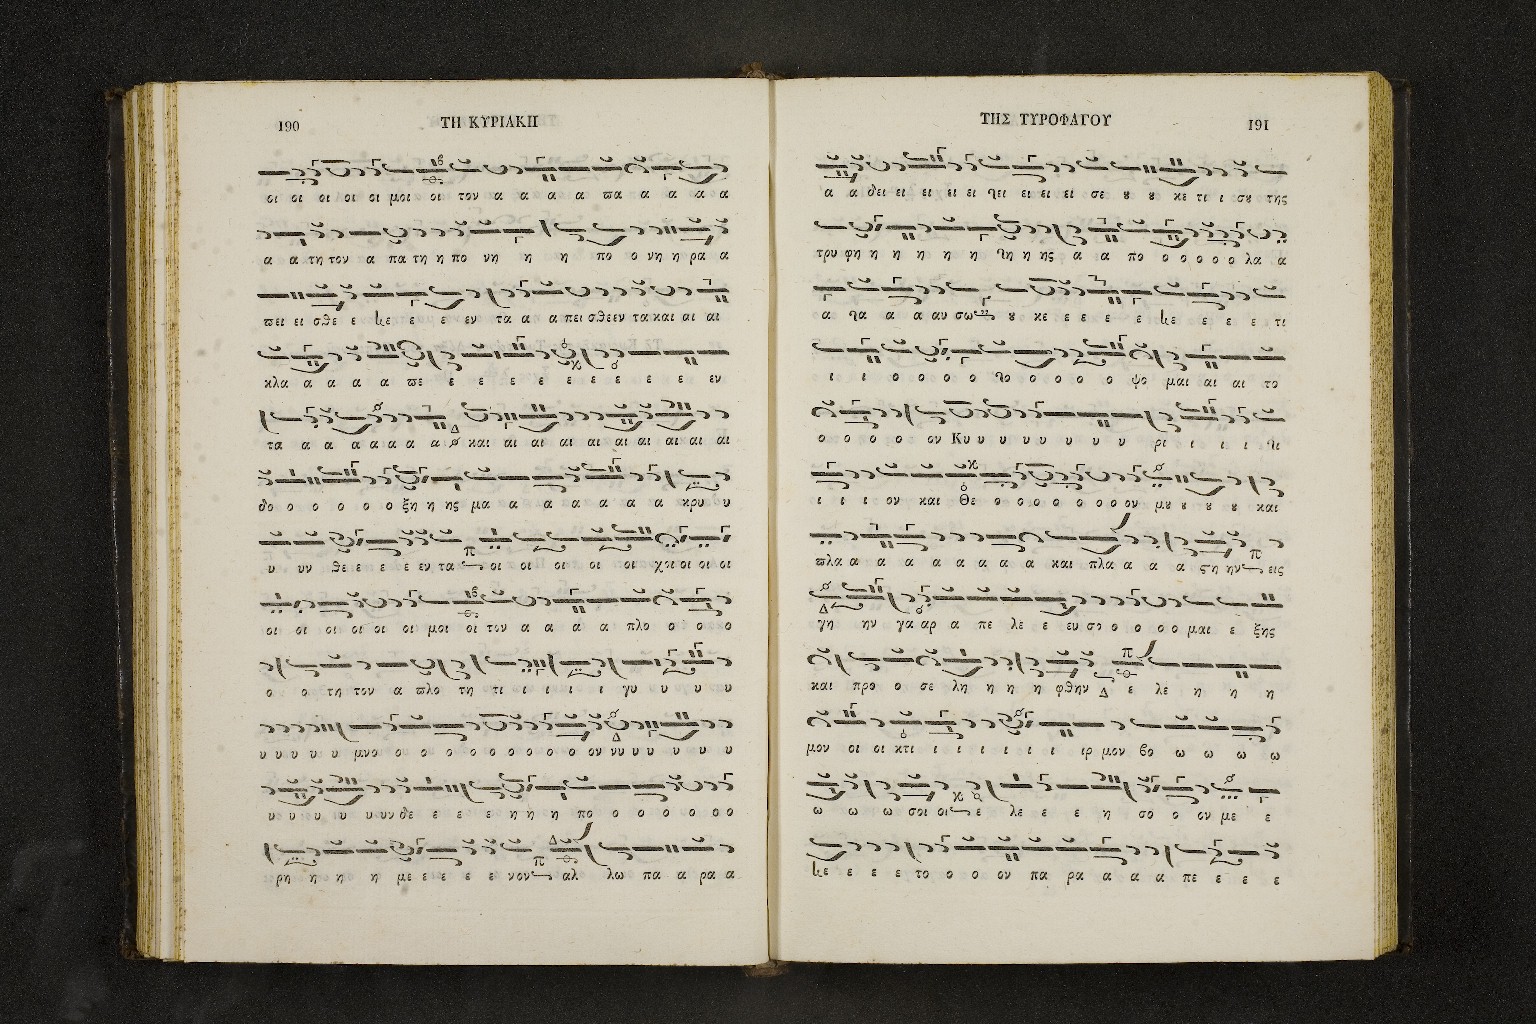 190 ΤΗ ΚΥΡΙΑΚΗ
οι οι οι οι οι μοι οι τον α α α α ϖα α α α α
α α τη τον α πα τη η πο νη η η πο ο νη η ρα α
ϖει ει σθε ε ε ε ε εν τα α α πει σθεεν τα και αι αι
κλα α α α α ϖε ε ε ε ε ε ε ε ε ε εν
τα α α α α α α α και αι αι αι αι αι αι αι αι αι
δο ο ο ο ο ο ξη η ης μα α α α α α α α κρυ υ
υ υν θε ε ε ε εν τα οι οι οι οι οι χοι οι οι οι
οι οι οι οι οι οι μοι οι τον α α α α πλο ο ο ο
ο ο τη τον α ϖλο τη τι ι ι ι ι γυ υ υ υ
υ υ υ υ υ μνο ο ο ο ο ο ο ο ο ο ον νυ υ υ υ υ υ
υ υ υ υ υ υν δε ε ε ε η η η πο ο ο ο ο ο ο
ρη η η η με ε ε ε ε νον αλ λω πα α ρα α
ΤΗΣ ΤΥΡΟΦΑΓΟΥ 191
α α θει ει ει ει ει ϛει ει ει ει σε ȣ ȣ κε τι ι σȣ της
τρυ φη η η η η η ϛη η ης α α πο ο ο ο ο ο λα α
α ϛα α α αυ σω ȣ κε ε ε ε ε ε ε ε ε τι
ι ι ο ο ο ο ϛο ο ο ο ο ψο μαι αι αι το
ο ο ο ο ον Κυ υ υ υ υ υ υ υ ρι ι ι ι ϛι
ι ι ι ον και Θε ο ο ο ο ο ο ο ον μȣ ȣ ȣ ȣ και
ϖλα α α α α α α α α και πλα α α α ϛη ην εις
γη ην γα αρ α πε λε ε ευ σο ο ο ο ο μαι ε ξης
και προ ο σε λη η η η φθην Δ ε λε η η η
μον οι οι κτι ι ι ι ι ι ι ιρ μον βο ω ω ω ω
ω ω ω σοι οι ε λε ε ε η σο ο ον με ε
ε ε ε ε το ο ο ον πα ρα α α α πε ε ε ε